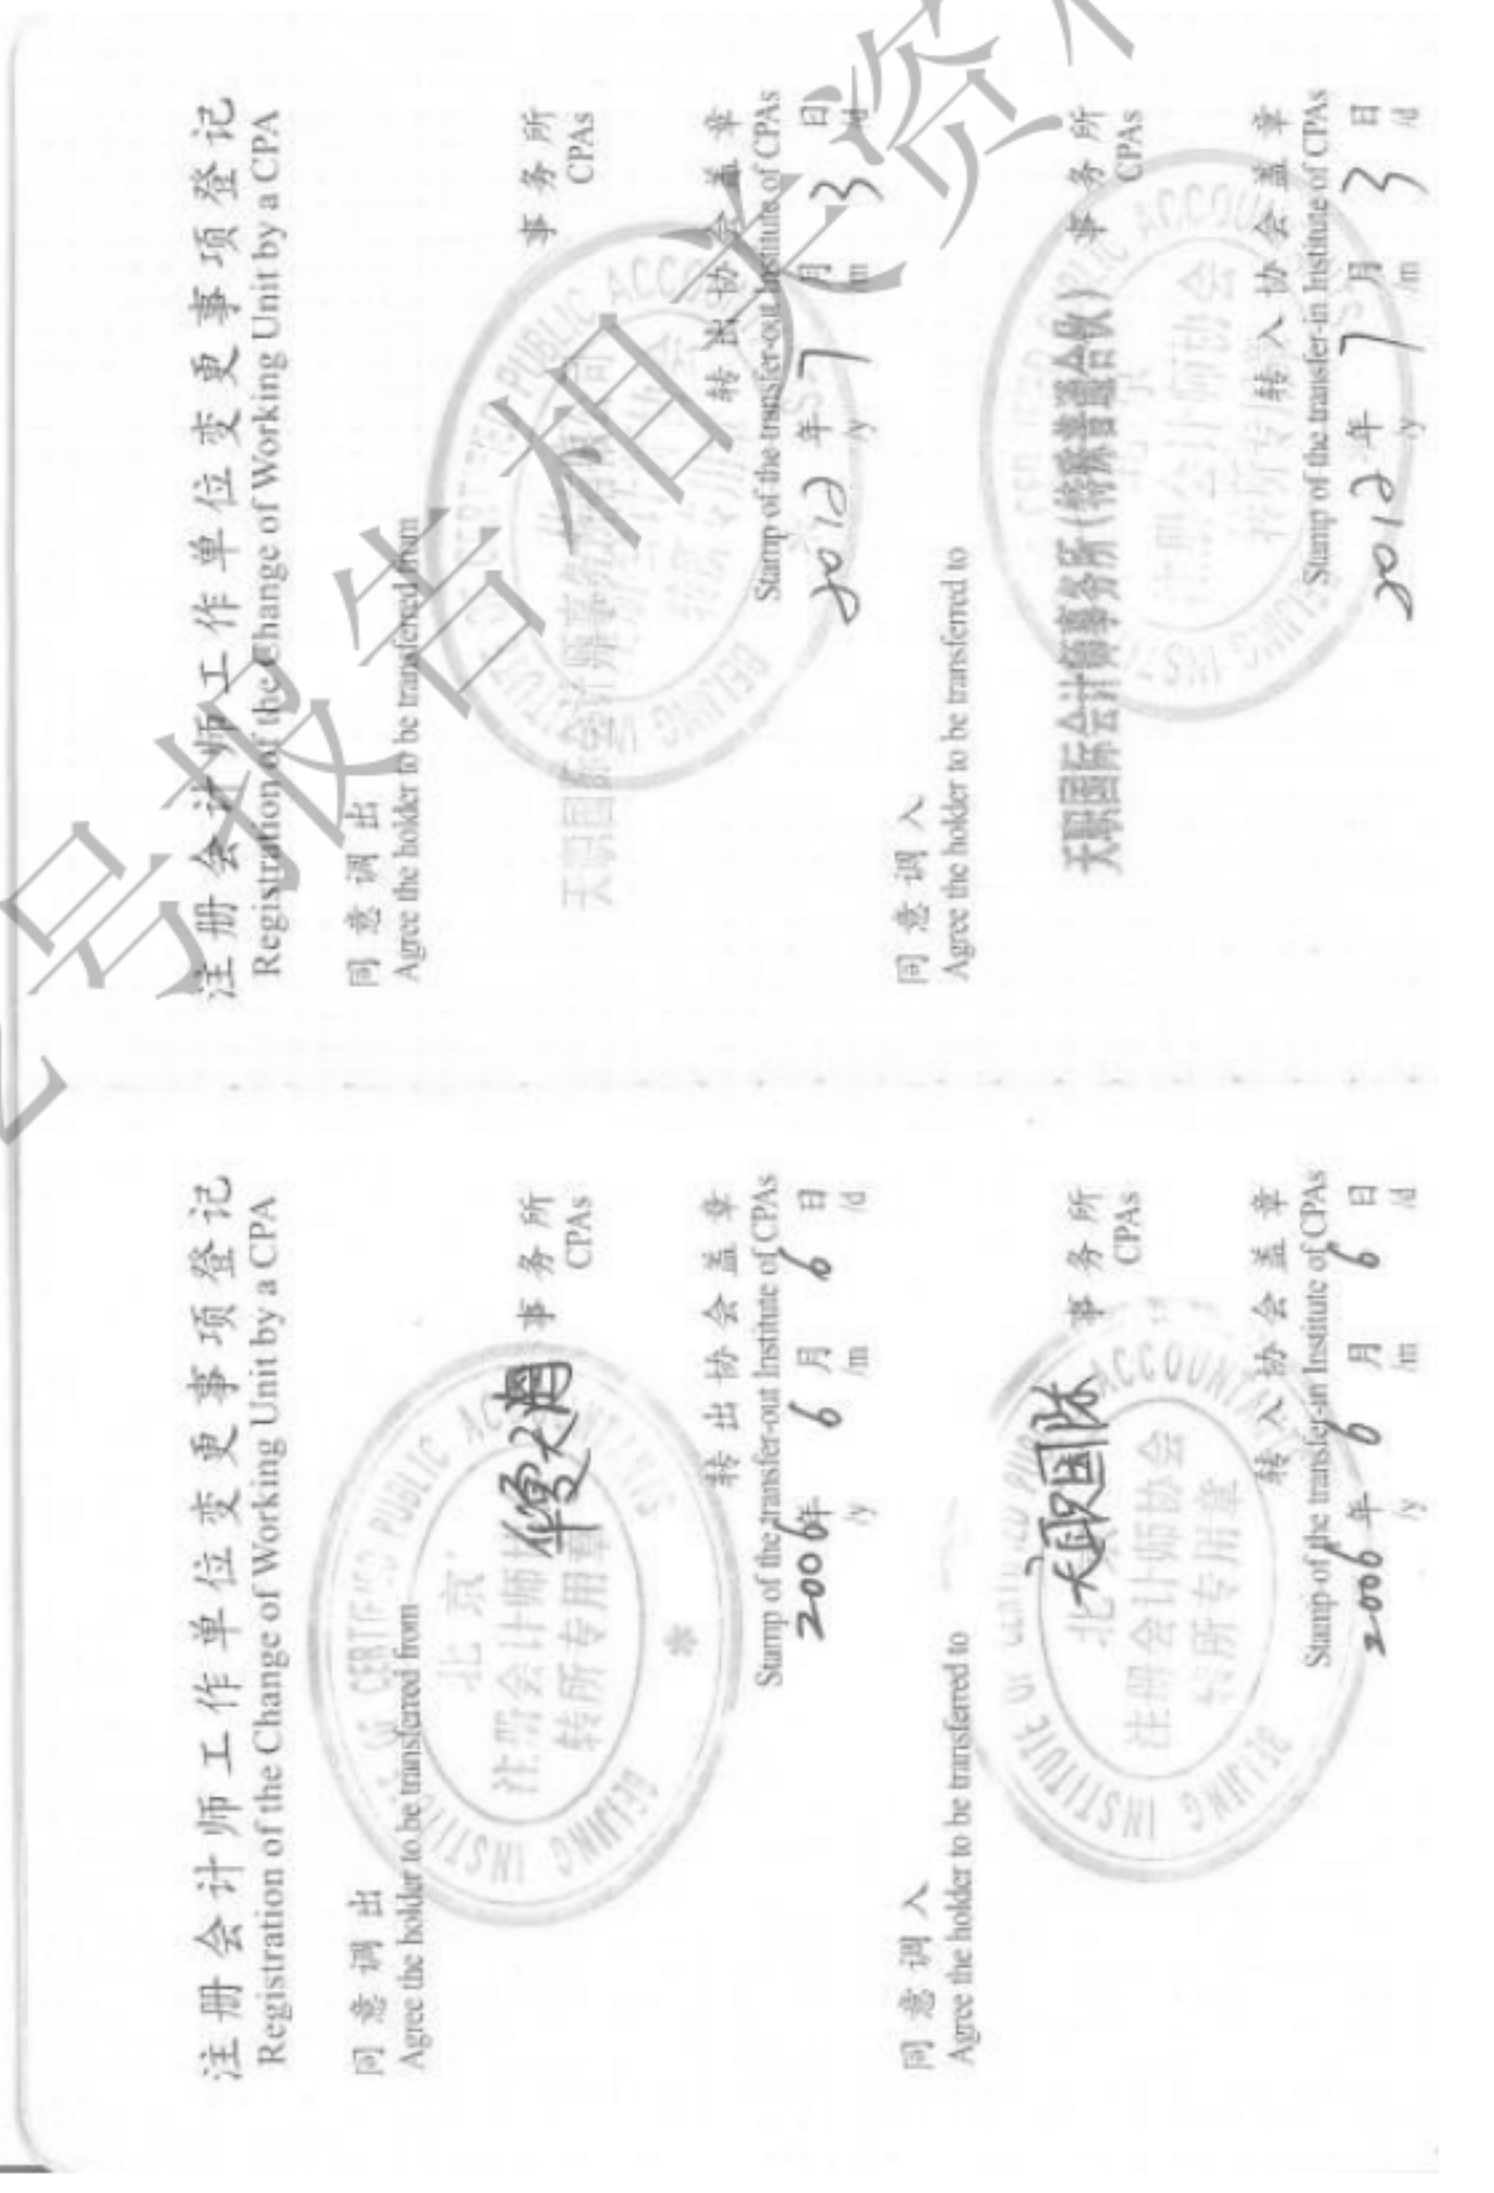 注册会计师工作单位变更事项登记
Registration of the Change of Working Unit by a CPA
同意调出
Agree the holder to be transferred from
事务所
CPAs
北京
注册会计师协会
转所专用章
BEIJING INSTITUTE OF CERTIFIED PUBLIC ACCOUNTANTS
转出协会盖章
Stamp of the transfer-out Institute of CPAs
2006年 6月 6日
/y /m /d
同意调入
Agree the holder to be transferred to
天职国际 事务所
CPAs
北京
注册会计师协会
转所专用章
BEIJING INSTITUTE OF CERTIFIED PUBLIC ACCOUNTANTS
转入协会盖章
Stamp of the transfer-in Institute of CPAs
2006年 6月 6日
/y /m /d
注册会计师工作单位变更事项登记
Registration of the Change of Working Unit by a CPA
同意调出
Agree the holder to be transferred from
事务所
CPAs
天职国际会计师事务所有限公司
转出协会盖章
Stamp of the transfer-out Institute of CPAs
2012年 7月 3日
/y /m /d
同意调入
Agree the holder to be transferred to
事务所
CPAs
天职国际会计师事务所(特殊普通合伙)
注册会计师协会
转所专用章
转入协会盖章
Stamp of the transfer-in Institute of CPAs
2012年 7月 3日
/y /m /d
号报告相关资